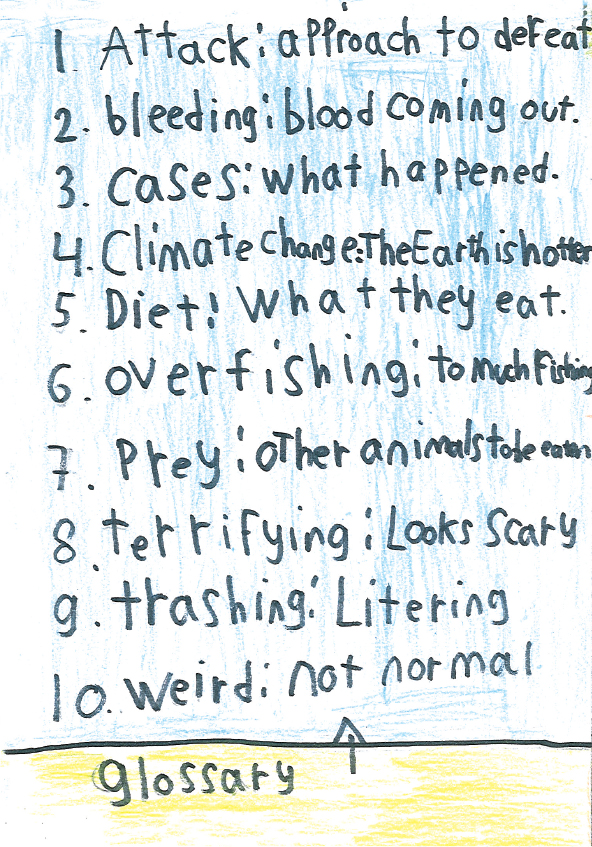 1. Attack: approach to defeat
2. bleeding: blood coming out.
3. Cases: what happened.
4. Climate change: The Earth is hotter
5. Diet: What they eat.
6. overfishing: to much Fishing
7. Prey: other animals to be eaten
8. terrifying: Looks Scary
9. trashing: Litering
10. Weird: not normal
glossary